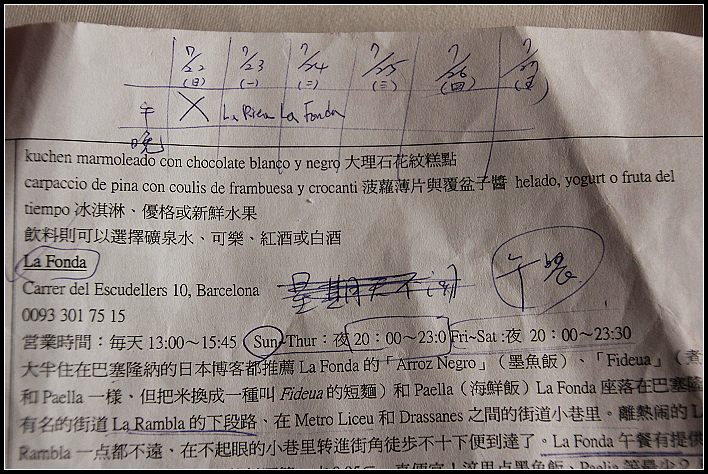 7/22 7/23 7/24 7/25 7/26 7/27
(日) (一) (二) (三) (四) (五)
午 X La Riera La Fonda
晚
kuchen marmoleado con chocolate blanco y negro 大理石花紋糕點
carpaccio de pina con coulis de frambuesa y crocanti 菠蘿薄片與覆盆子醬 helado, yogurt o fruta del
tiempo 冰淇淋、優格或新鮮水果
飲料則可以選擇礦泉水、可樂、紅酒或白酒
La Fonda
Carrer del Escudellers 10, Barcelona 星期天不 午晚
0093 301 75 15
營業時間：每天 13:00～15:45 Sun~Thur：夜 20：00～23:0 Fri~Sat :夜 20：00～23:30
大半住在巴塞隆納的日本博客都推薦 La Fonda 的「Arroz Negro」（墨魚飯）、「Fideua」（煮
和 Paella 一樣、但把米換成一種叫 Fideua 的短麵）和 Paella（海鮮飯）La Fonda 座落在巴塞隆
有名的街道 La Rambla 的下段路、在 Metro Liceu 和 Drassanes 之間的街道小巷里。離熱鬧的 L
Rambla 一點都不遠、在不起眼的小巷里轉進街角徒步不十下便到達了。La Fonda 午餐有提供